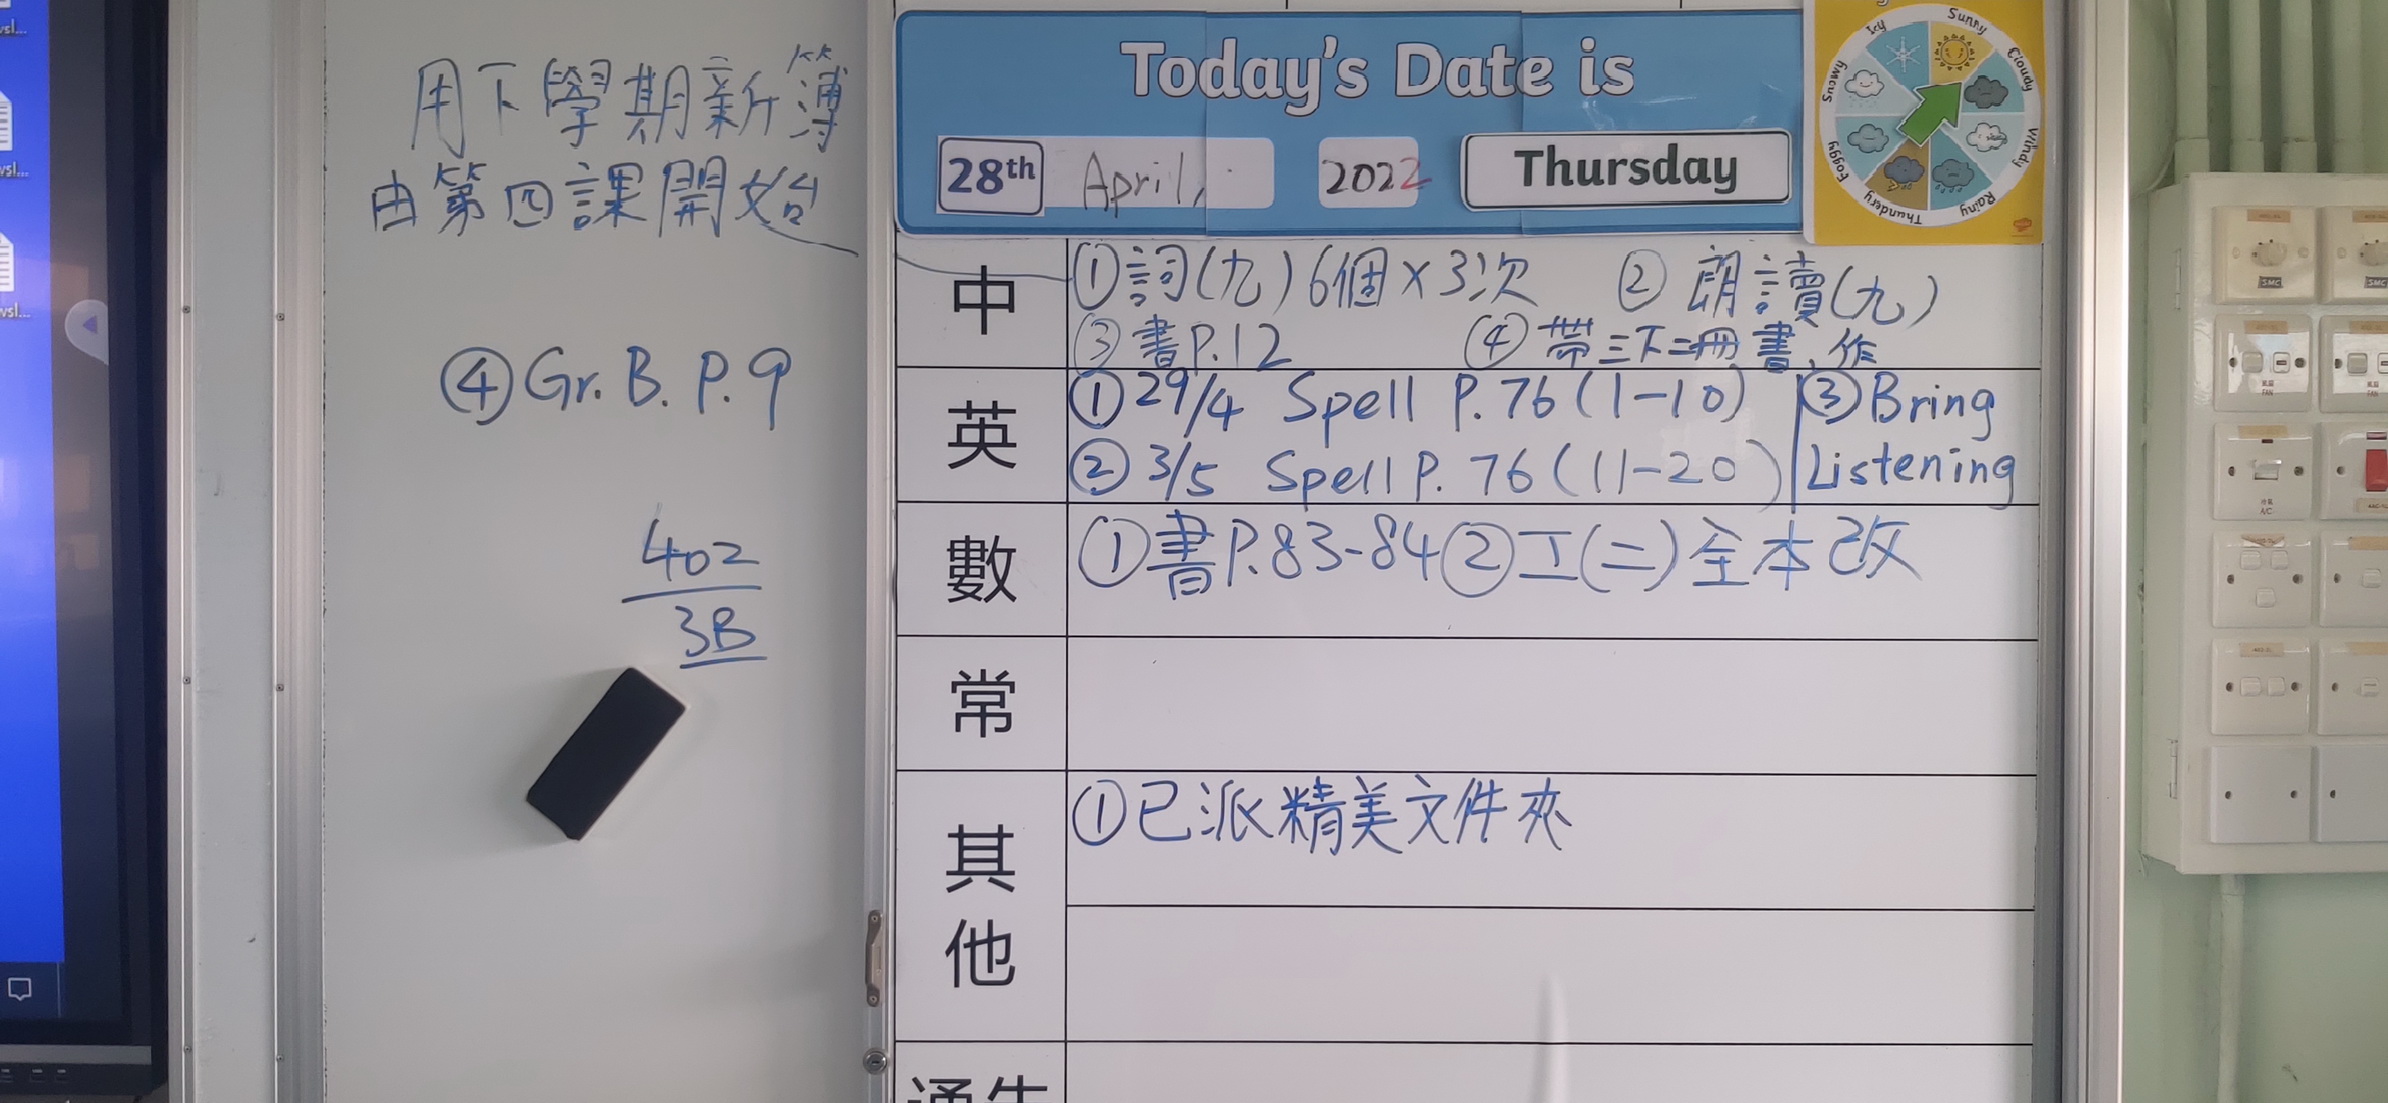 用下學期新簿
由第四課開始
④Gr. B. P. 9
402
3B
Today's Date is
28th April, 2022 Thursday
Icy
Sunny
Cloudy
Windy
Rainy
Thundery
Foggy
Snowy
中
①詞(九)6個×3次 ②朗讀(九)
③書P.12 ④帶三下二冊書、作
英
①29/4 Spell P. 76 (1-10)
②3/5 Spell P. 76 (11-20)
③Bring
Listening
數
①書P.83-84②工(二)全本改
常
其他
①已派精美文件夾
通告
SMC
FAN
FAN
A/C